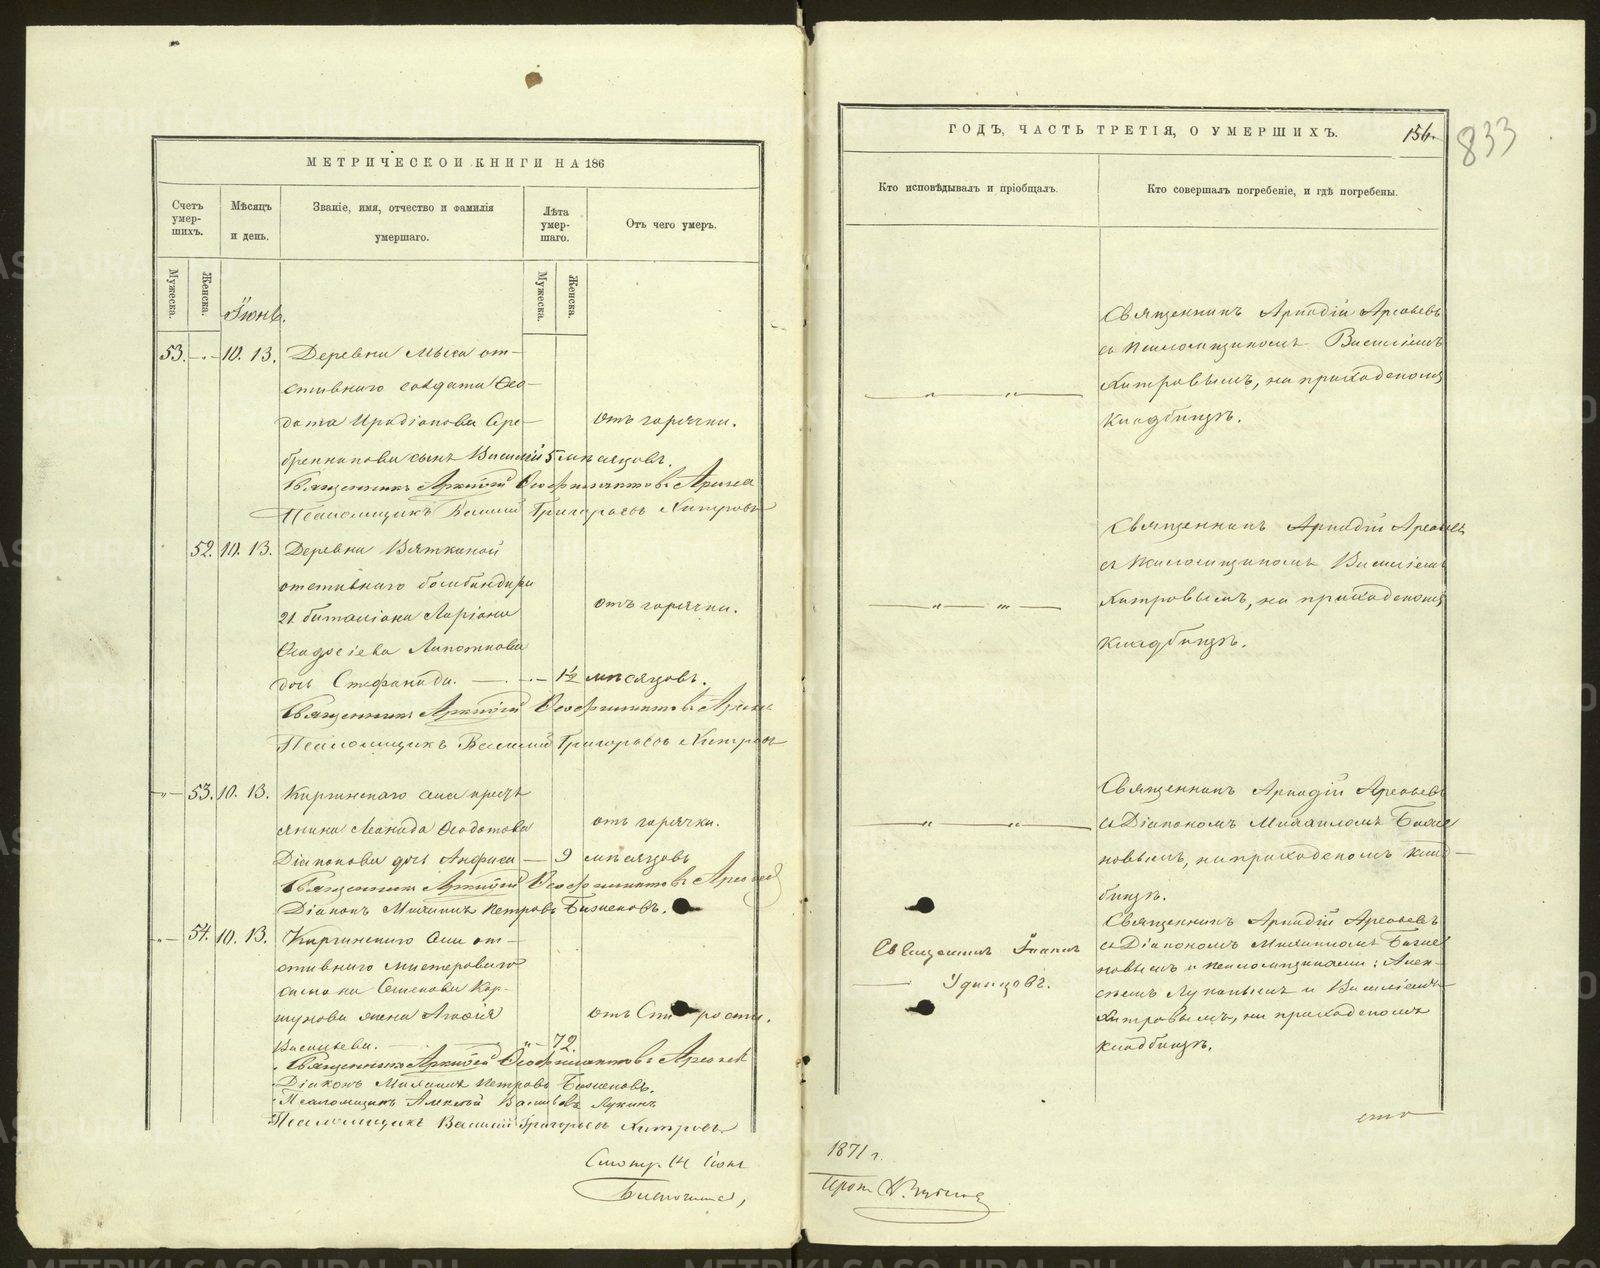 МЕТРИЧЕСКОЙ КНИГИ НА 186
Счетъ умер-шихъ.
Мѣсяцъ и день.
Званіе, имя, отчество и фамилія умершаго.
Лѣта умер-шаго.
Отъ чего умеръ.
Мужеска.
Женска.
Мужеска.
Женска.
Іюнь.
53. 10. 13. Деревни Мыса от-
ставнаго солдата Ѳео-
дота Иродіонова Сере-
бренникова сынъ Василій 5 мѣсяцовъ.
отъ горячки.
Священникъ Аркадій Ѳеофилактовъ
Псаломщикъ Василій Григорьевъ Хитровъ
52. 10. 13. Деревни Вяткиной
отставнаго бомбандира
21 баталіона Ларіона
дочь Стефанида. 1½ мѣсяцовъ.
отъ горячки.
Священникъ Аркадій Ѳеофилактовъ
Псаломщикъ Василій Григорьевъ Хитровъ
53. 10. 13. Киргинскаго села кресть
янина Леонида Ѳеодотова
Діаконова дочь Анфиса 9 мѣсяцовъ
отъ горячки.
Священникъ Аркадій Ѳеофилактовъ
Діаконъ Михаилъ Петровъ
54. 10. 13. Киргинскаго села от-
ставнаго мастероваго
Семенова Кор-
шунова жена Агафія
Васильева. 72.
отъ Старости.
Священникъ Аркадій Ѳеофилактовъ
Діаконъ Михаилъ Петровъ
Псаломщикъ Алексѣй Васильевъ Лукинъ
Псаломщикъ Василій Григорьевъ Хитровъ
Смотр. 14 Іюня
ГОДЪ, ЧАСТЬ ТРЕТІЯ, О УМЕРШИХЪ.
156.
833
Кто исповѣдывалъ и пріобщалъ.
Кто совершалъ погребеніе, и гдѣ погребены.
Священникъ Аркадій
съ Псаломщикомъ Василіемъ
Хитровымъ, на приходскомъ
кладбищѣ.
Священникъ Аркадій
съ Псаломщикомъ Василіемъ
Хитровымъ, на приходскомъ
кладбищѣ.
Священникъ Аркадій
съ Діакономъ Михаиломъ
новымъ, на приходскомъ клад-
бищѣ.
Священникъ Іоаннъ
Удинцовъ.
Священникъ Аркадій
съ Діакономъ Михаиломъ
новымъ и псаломщиками: Алек-
сѣемъ Лукинымъ и Василіемъ
Хитровымъ, на приходскомъ
кладбищѣ.
1871 г.
METRIKI.GASO-URAL.RU